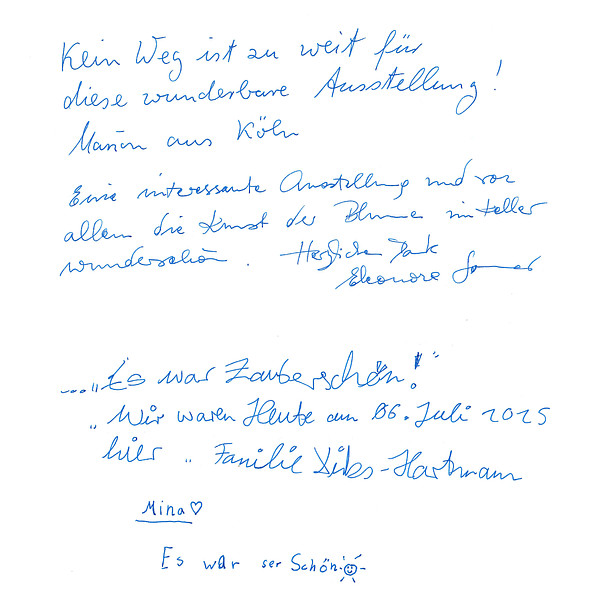 Kein Weg ist zu weit für
diese wunderbare Ausstellung!
Marion aus Köln
Eine interessante Ausstellung und vor
allem die Kunst der Blume im Keller
wunderschön. Herzlichen Dank
Eleonore
...."Es war Zauberschön!"
"Wir waren Heute am 06. Juli 2025
hier " Familie -Hartmann
Mina♡
Es war ser Schön